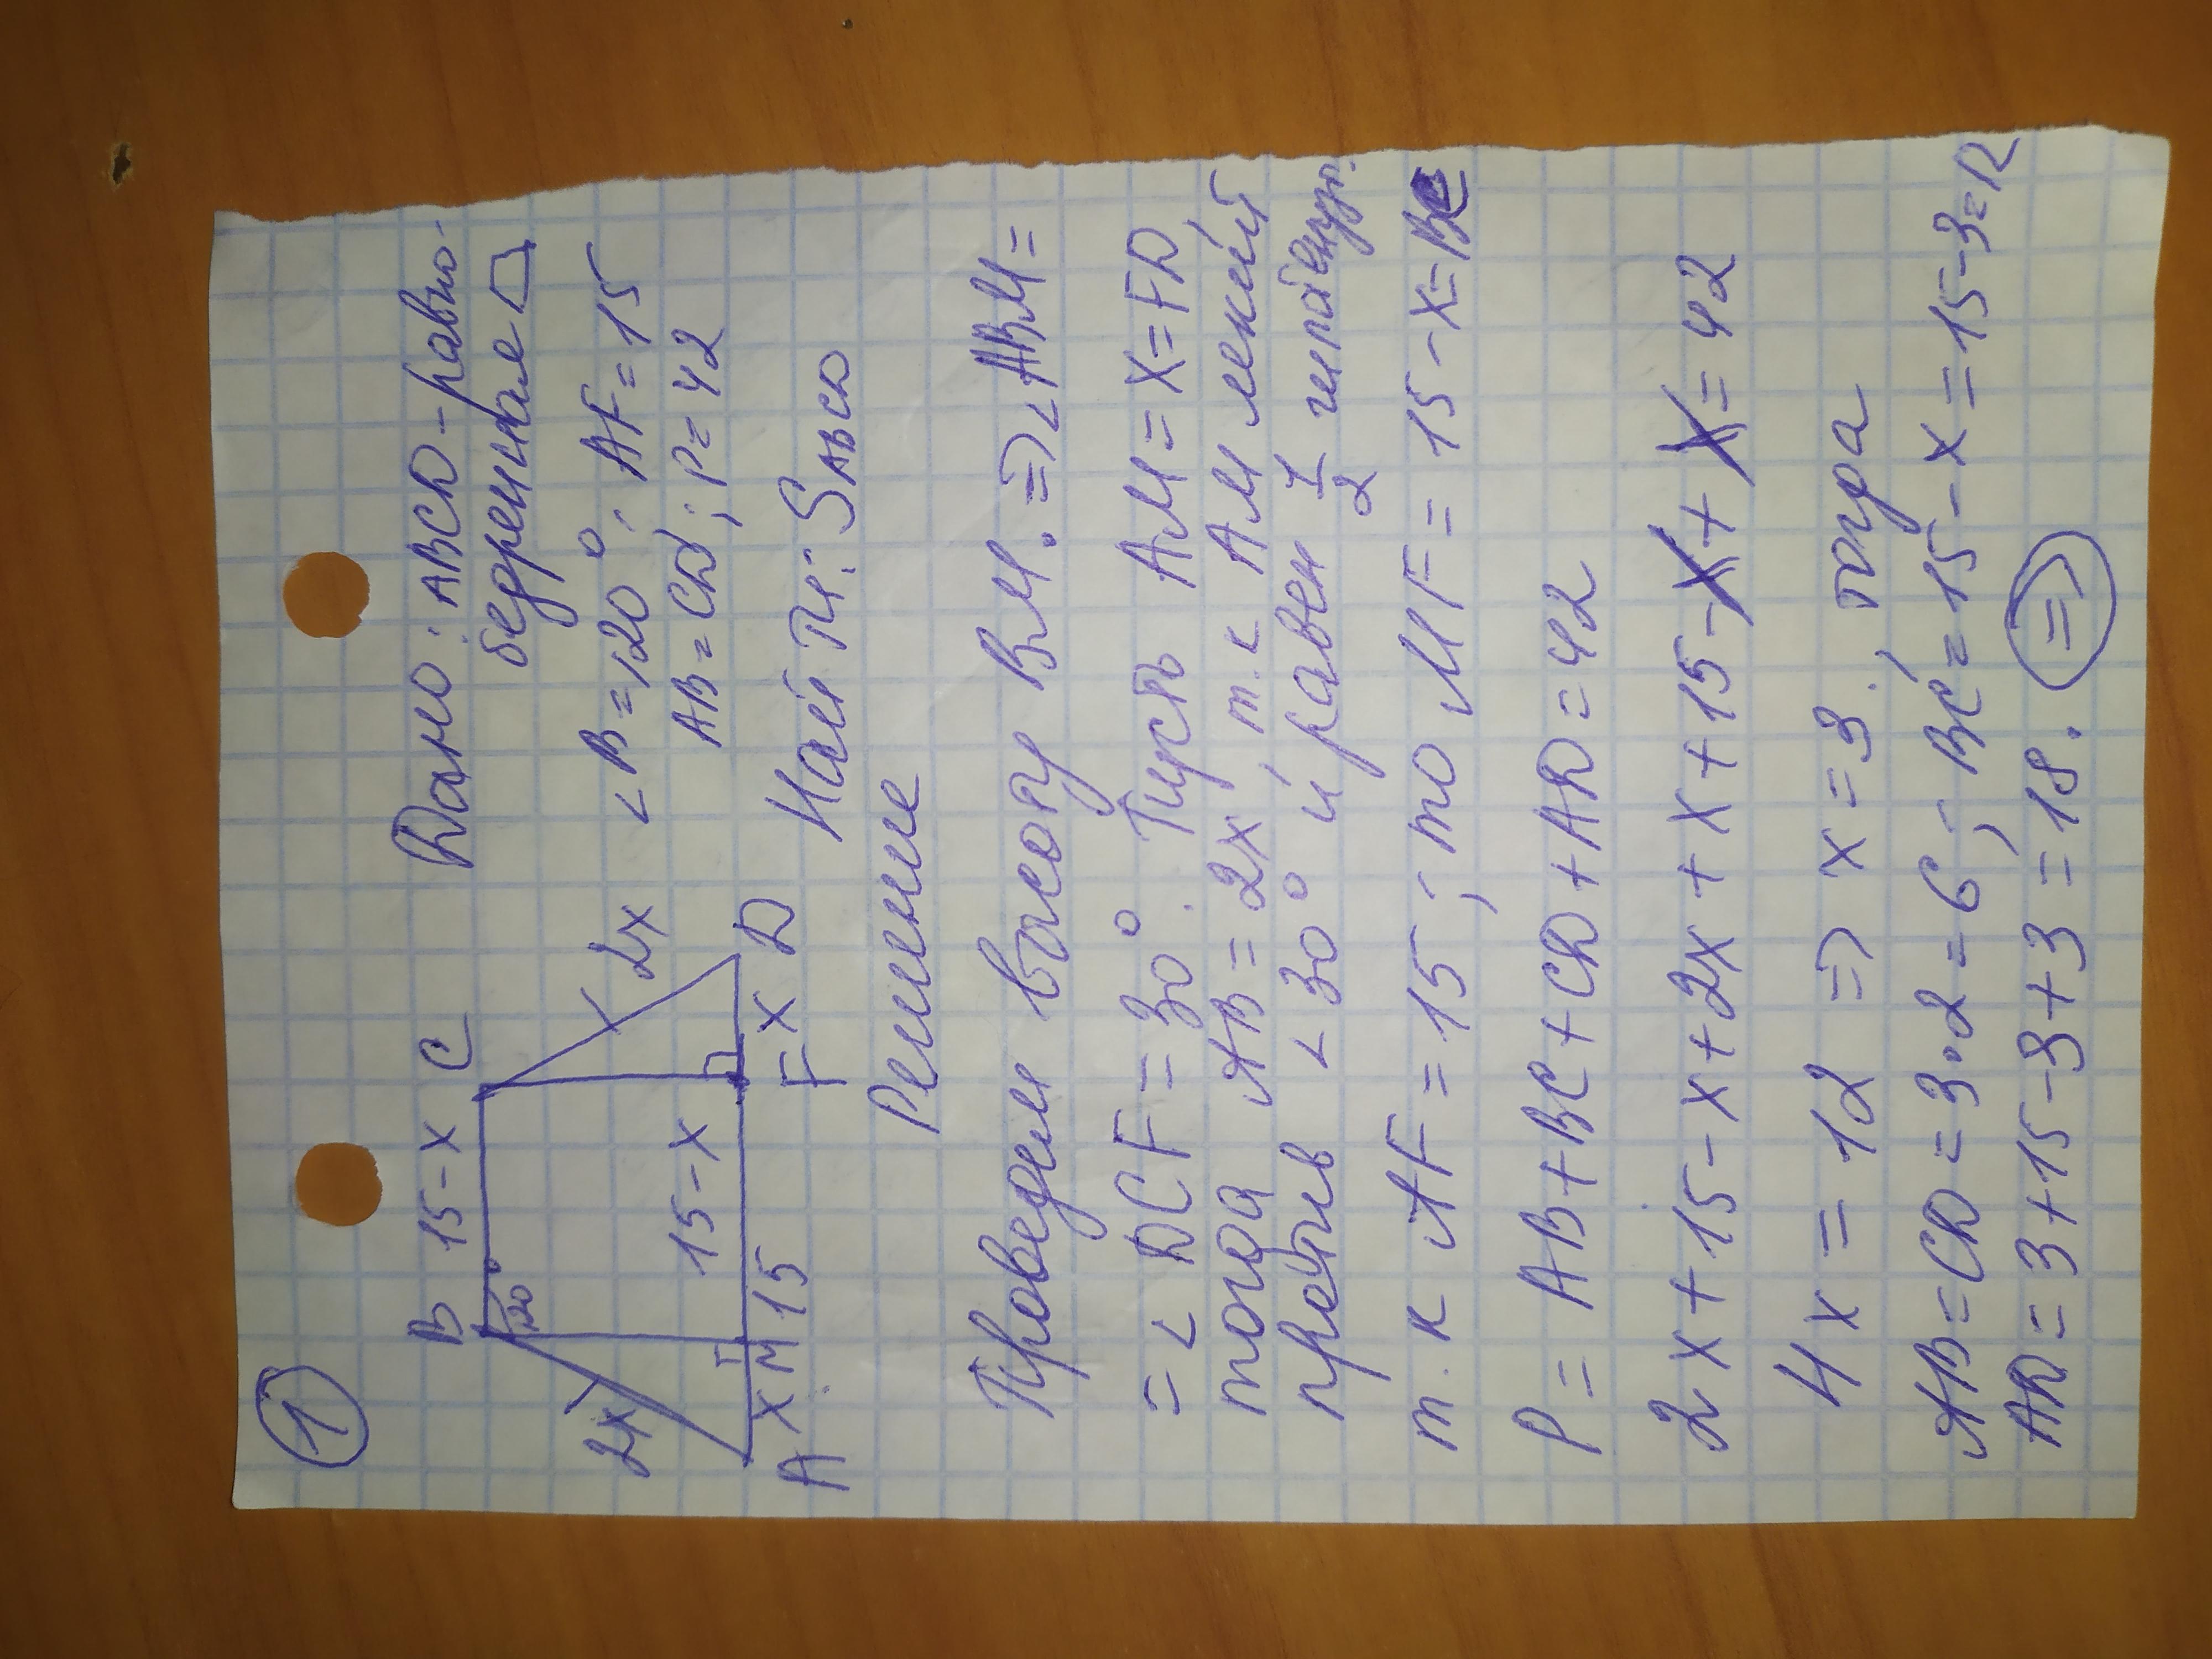 1
B 15-x C
120°
2x
2x
15-x
A x M 15 F x D
Дано: ABCD - равно-
бедренная
<B=120°; AF=15
AB=CD; P=42
Найти: SABCD
Решение
Проведем высоту BM. => <ABM=
= <DCF = 30°. Пусть AM = x = FD
тогда AB = 2x, т.к AM лежит
против <30° и равен 1/2 гипотенузы.
т.к AF = 15; то MF = 15-x=BC
P = AB+BC+CD+AD=42
2x+15-x+2x+x+15-x+x=42
4x = 12 => x=3. тогда
AB=CD=3·2=6; BC=15-x=15-3=12
AD=3+15-3+3=18. =>